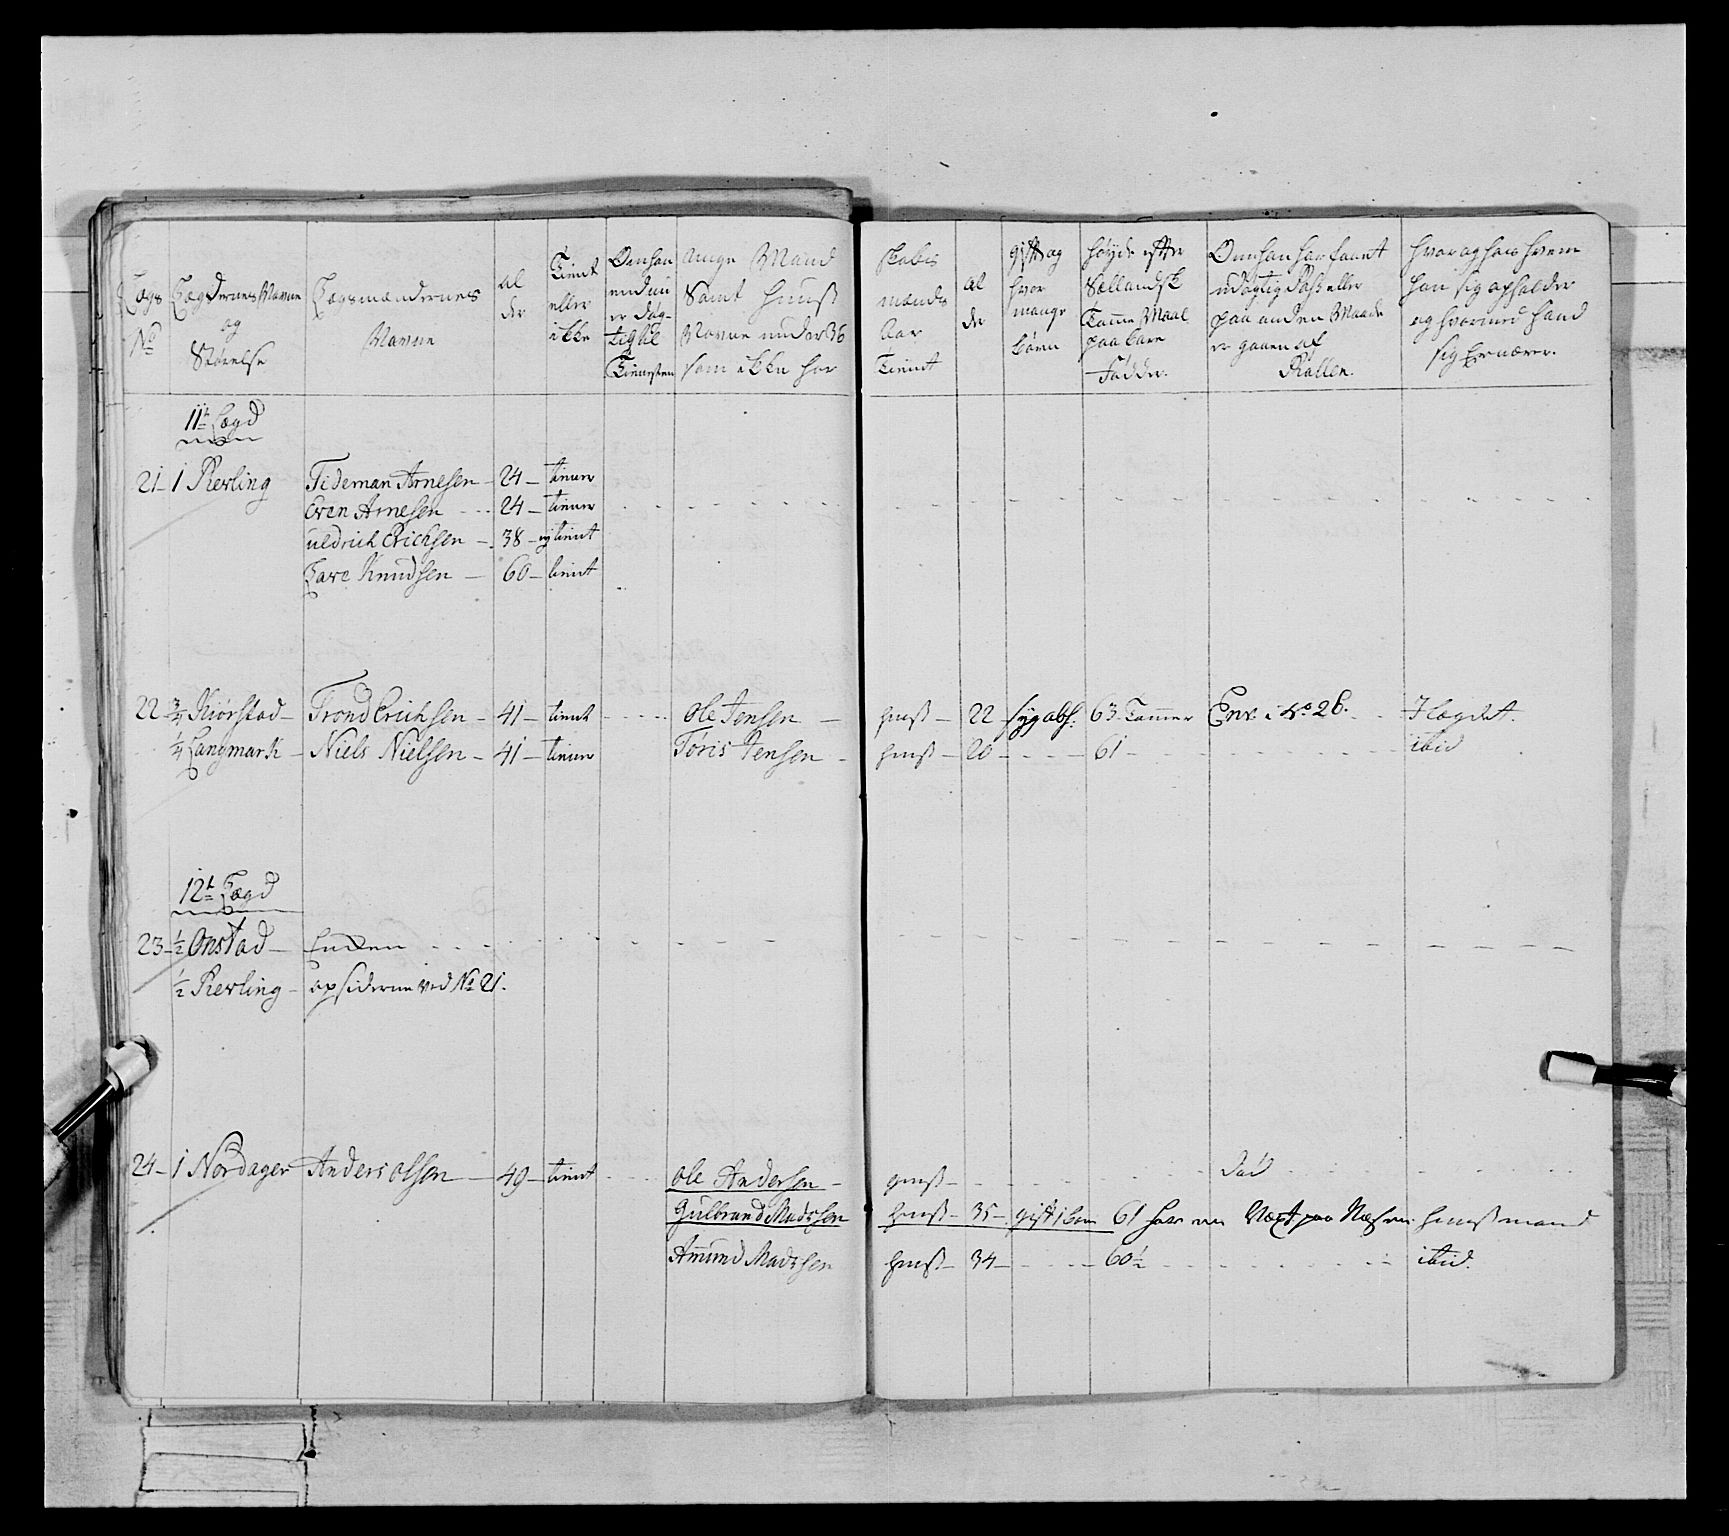 Lægs No
Lægdernes Navne og Størelse
Lægsmændernes Navne
Al der
Tient eller ikke
Om han endnu er dög- tig til Tienesten
unge Mand Samt huusß Navne under 36 som ikke har
skabes mænds Aar Tient
al der
gift og hvor mange börn
höyde efter Sællandsk Tomme Maal paa bare Födder.
Om han har faaet udögtig Pass eller paa anden Maade er gaaen af Rollen.
hvor og hos hvem han sig opholder og hvormed hand sig Ernærer.
11te Lægd
21 1 Revling Tideman Arnesen 24 tiener
Even Arnesen 24 tiener
uldrich Erichsen 38 ej tient
Lare Knudsen 60 tient
22 3/4 Kiörstad Trond Erichsen 41 tient Ole Jensen huusß 22 syg abs. 63 Tommer Enr. i No 26. I Lægdet.
1/4 Langmark Niels Nielsen 41 tiener Töris Jensen huusß 20 61 ibid
12te Lægd
23 1/2 Onstad Enken
1/2 Revling opsiderne ved No 21.
24 1 Nordager Anders Olssen 49 tient Ole Andersen huusß Död
Gulbrand Madssen huusß 35 gift 1 barn 61 har en paa huusßmand
Amund Madssen huusß 34 60 1/2 ibid.